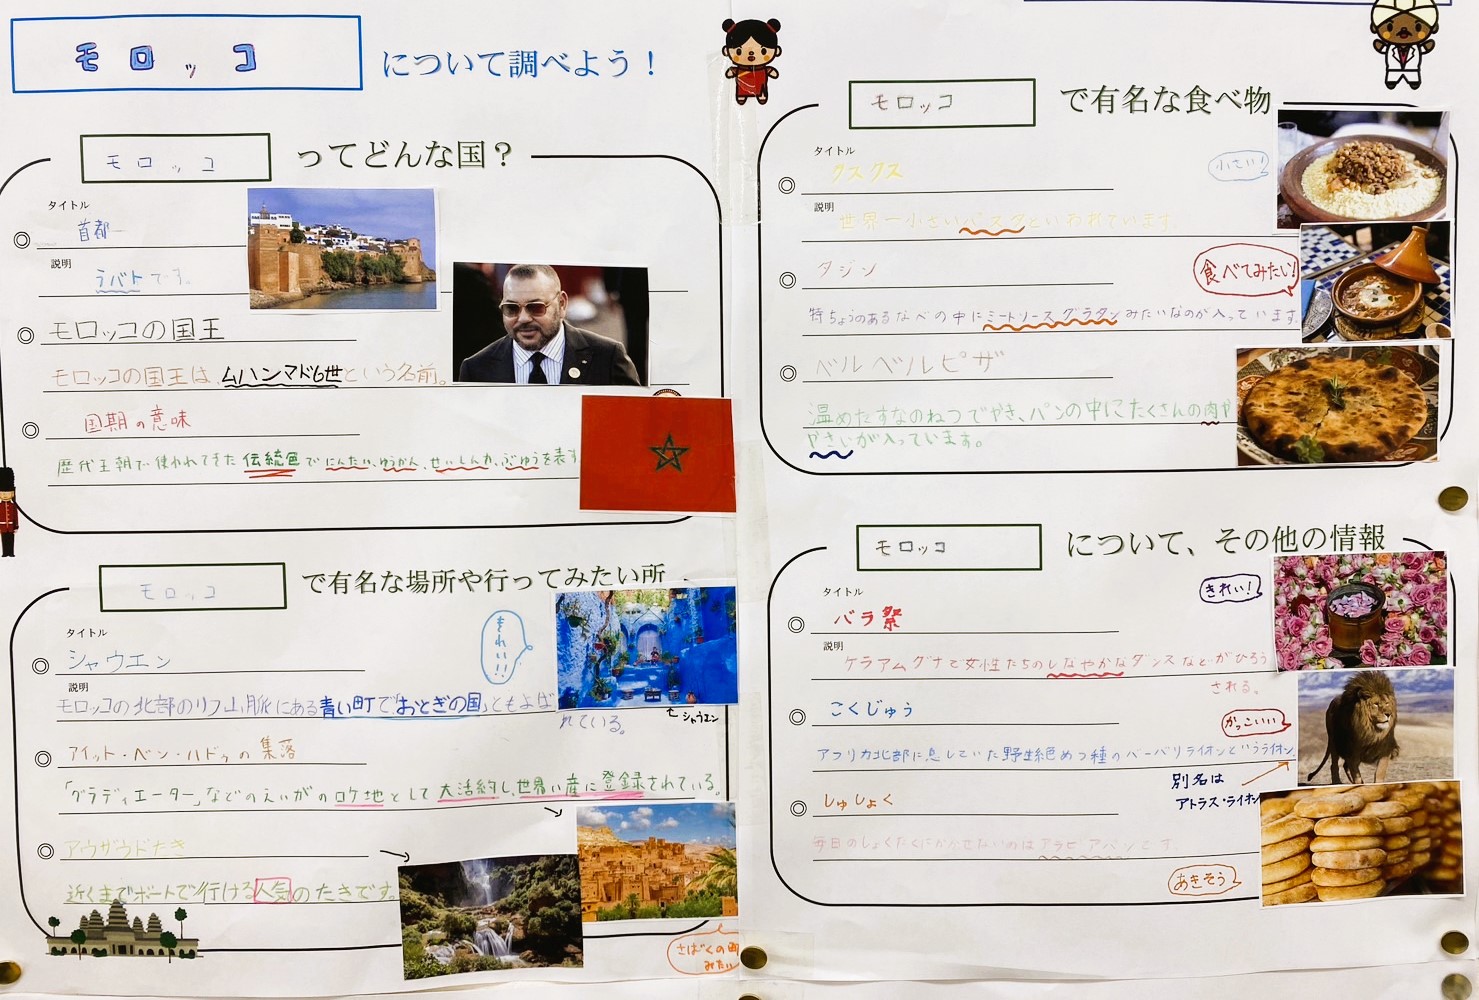 モロッコ について調べよう！
モロッコ ってどんな国？
タイトル
首都
説明
ラバトです。
モロッコの国王
モロッコの国王は、ムハンマド6世という名前。
国期の意味
歴代王朝で使われてきた伝統色でにんたい、ゆうかん、せいしんか、ぶゆうを表す
モロッコ で有名な場所や行ってみたい所
タイトル
シャウエン
きれい!!
説明
モロッコの北部のリフ山脈にある青い町で「おとぎの国」ともよば
れている。
←シャウエン
アイット・ベン・ハドゥの集落
「グラディエーター」などのえいがのロケ地として大活約し、世界い産に登録されている。
アウザウドたき
近くまでボートで行ける人気のたきです。
さばくの町
みたい
モロッコ で有名な食べ物
タイトル
クスクス
小さい!
説明
世界一小さいパスタといわれています
タジン
食べてみたい!
特ちょうのあるなべの中にミートソースグラタンみたいなのが入っています。
ベルベルピザ
温めたすなのねつでやき、パンの中にたくさんの肉や
やさいが入っています。
モロッコ について、その他の情報
タイトル
バラ祭
きれい!
説明
ケラアムグナで女性たちのしなやかなダンスなどがひろう
される。
こくじゅう
かっこいい
アフリカ北部に息していた野生絶めつ種のバーバリライオンというライオン
別名は
アトラス・ライオン
しゅしょく
毎日のしょくたくにかかせないのはアラビアパンです。
あきそう